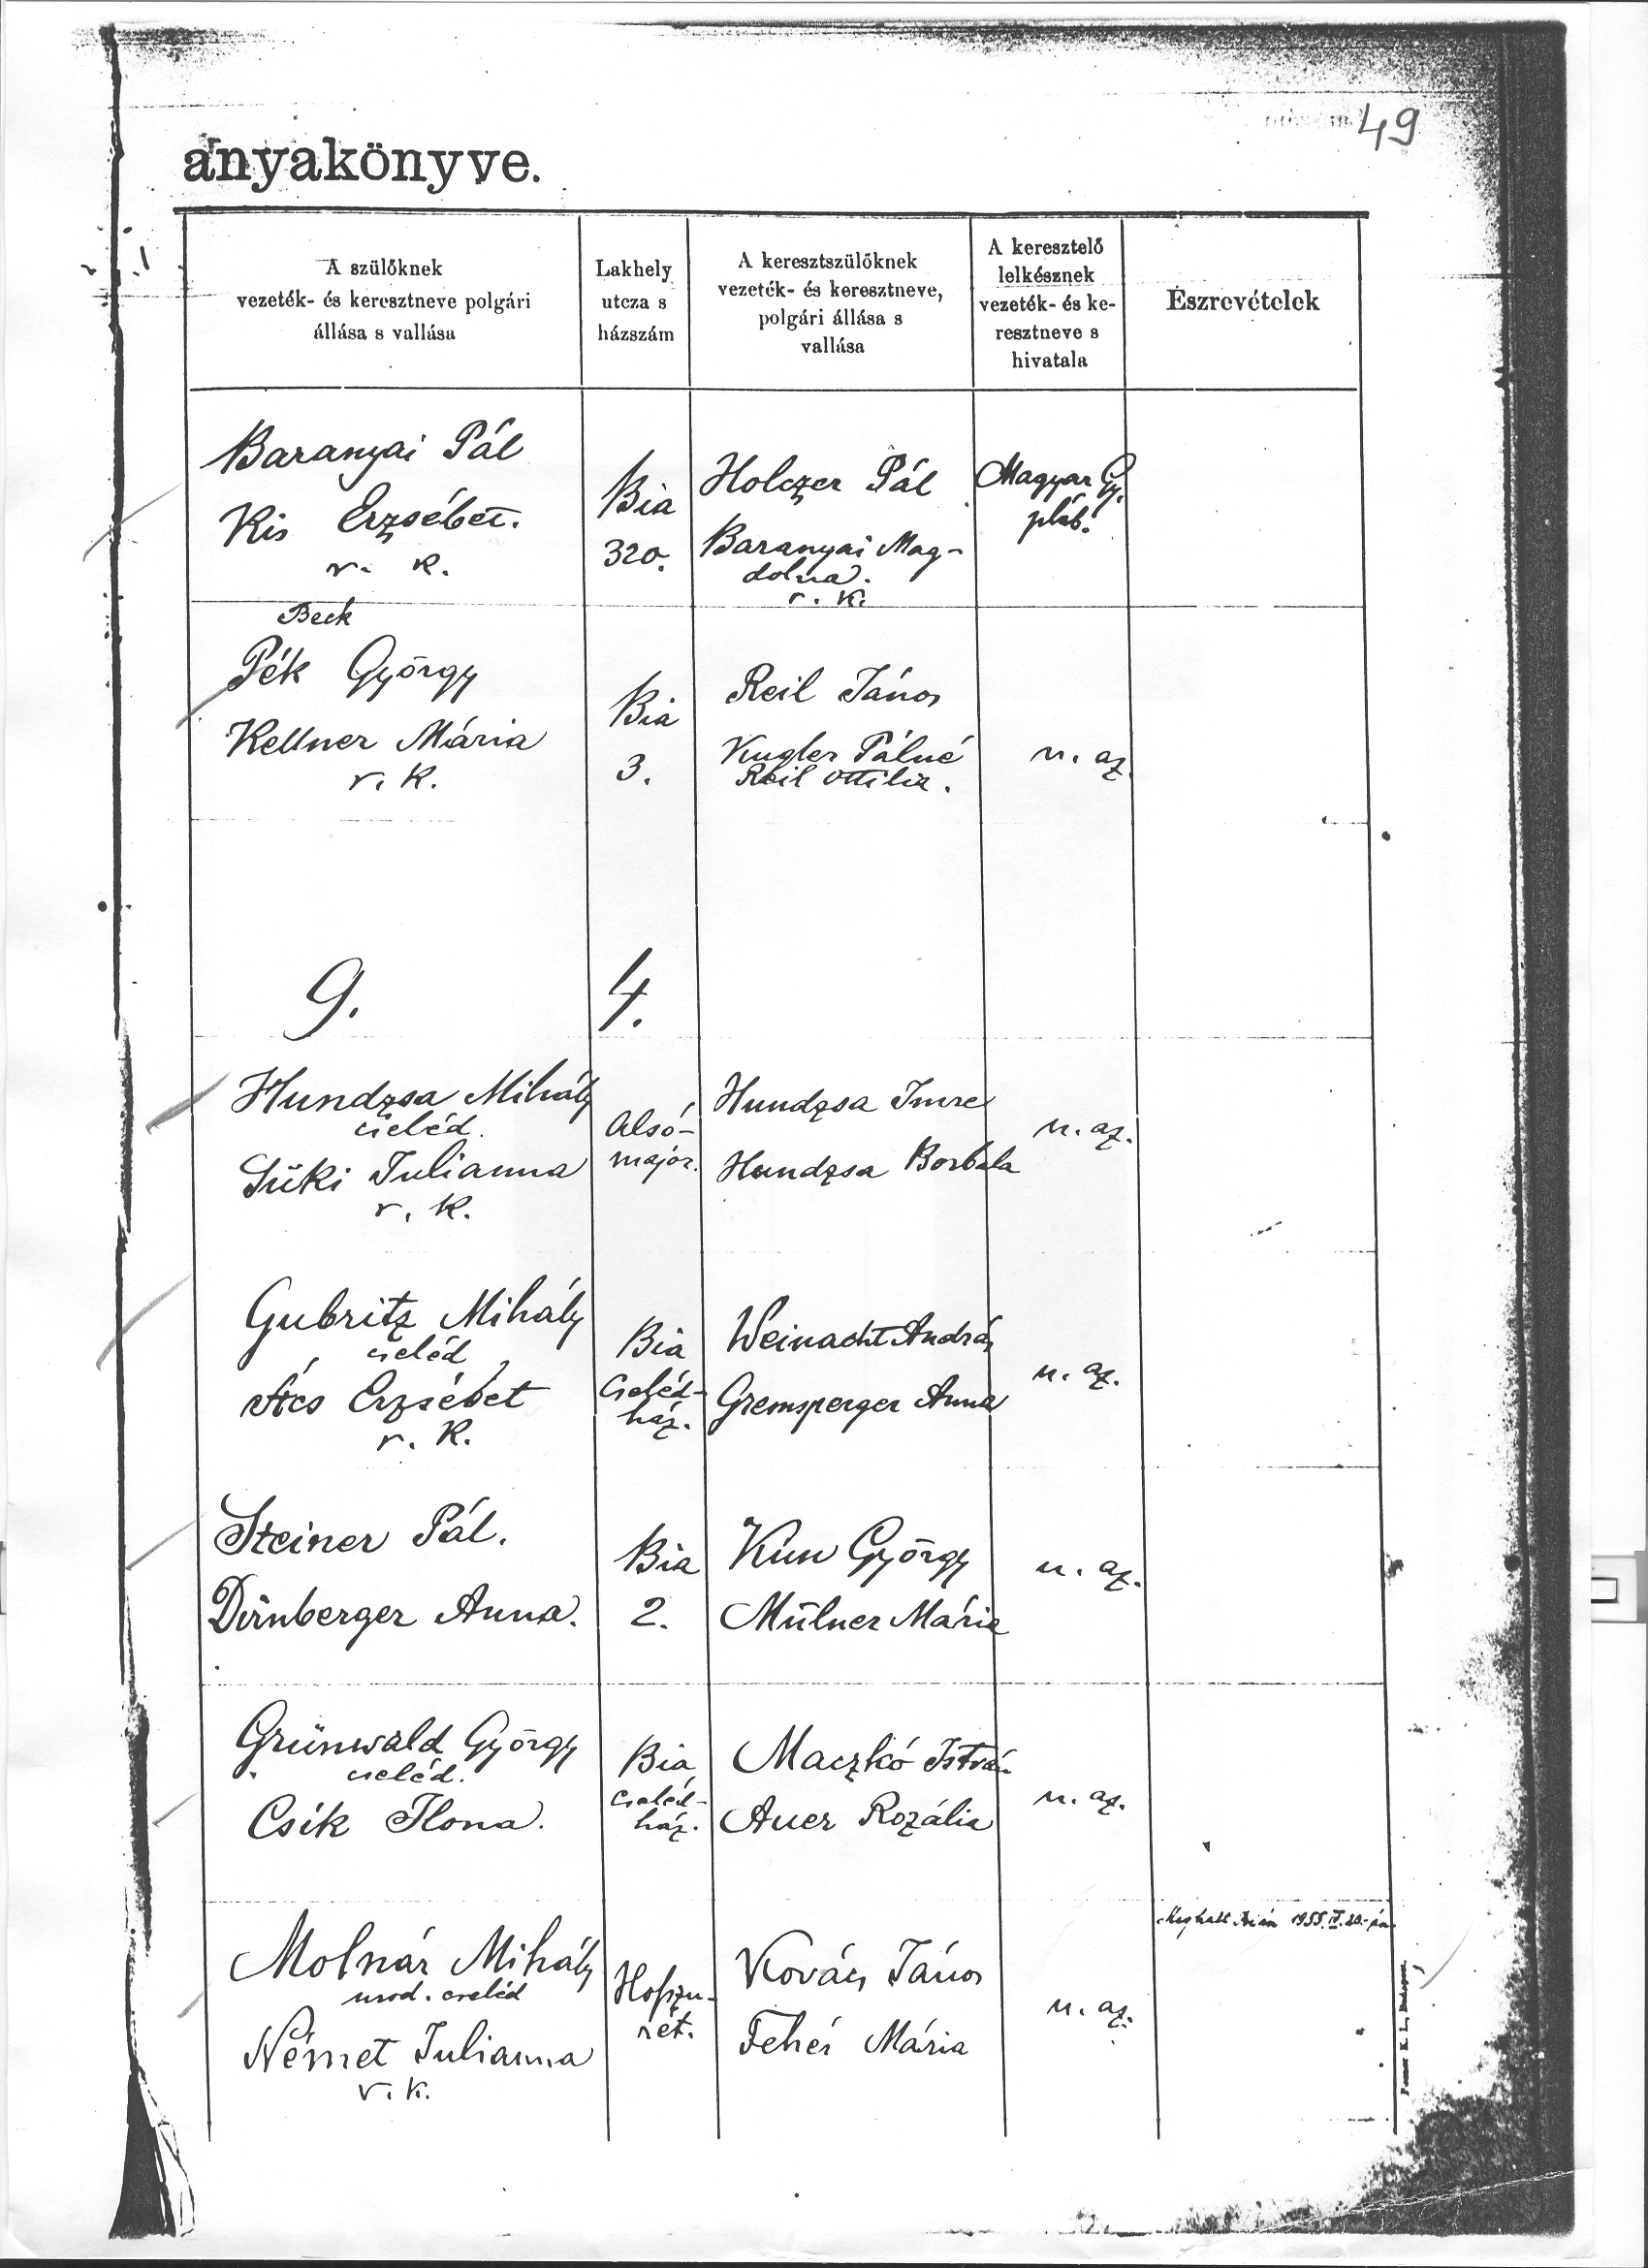 49
anyakönyve.
A szülőknek
vezeték- és keresztneve polgári
állása s vallása
Lakhely
utcza s
házszám
A keresztszülőknek
vezeték- és keresztneve,
polgári állása s
vallása
A keresztelő
lelkésznek
vezeték- és ke-
resztneve s
hivatala
Észrevételek
Baranyai Pál
Kis Erzsébet.
r. k.
Bia
320.
Holczer Pál
Baranyai Mag-
dolna.
r. k.
Magyar Gy.
pléb.
Beck
Pék György
Kellner Mária
r. k.
Bia
3.
Reil János
Kugler Pálné
Reil Ottilia.
u. az.
9.
4.
Hundzsa Mihály
cseléd.
Süki Julianna
r. k.
Alsó-
major.
Hundzsa Imre
Hundzsa Borbála
u. az.
Gubritz Mihály
cseléd
Ács Erzsébet
r. k.
Bia
Cseléd-
ház.
Weinacht András
Gremsperger Anna
u. az.
Steiner Pál.
Dirnberger Anna.
Bia
2.
Kun György
Mülner Mária
u. az.
Grünwald György
cseléd.
Csik Ilona.
Bia
cseléd-
ház.
Maczkó István
Auer Rozália
u. az.
Molnár Mihály
urod. cseléd
Német Julianna
r. k.
rét.
Kovács János
Fehér Mária
u. az.
Meghalt Bián 1955. IV. 20.-án